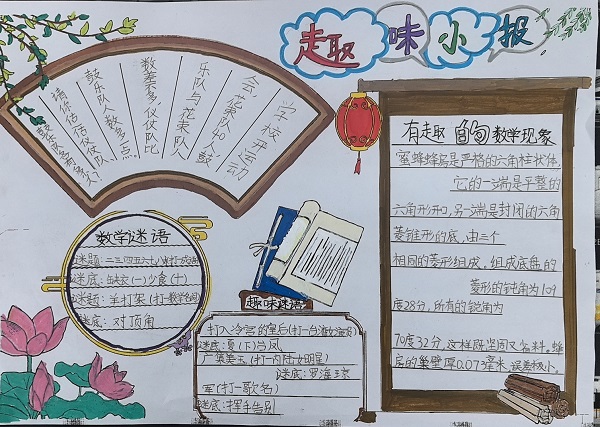 趣味小报
学校开运动
会,花束队40人,鼓
乐队与花束队人
数差不多,仪仗队比
鼓乐队人数多一点.
请你估估仪仗队
有趣的数学现象
蜜蜂蜂房是严格的六角柱状体,
它的一端是平整的
六角形开口,另一端是封闭的六角
菱锥形的底,由三个
相同的菱形组成,组成底盘的
菱形的钝角为109
度28分,所有的锐角为
70度32分,这样既坚固又省料,蜂
房的巢壁厚0.073毫米,误差极小.
数学谜语
谜题:二三四五六七八九(打一成语)
谜底:缺衣(一)少食(十)
谜题:羊打架(打一数学名词)
谜底:对顶角
趣味谜语
打入冷宫的皇后(打一台
谜底:
(打一内陆女明星)
谜底:罗海琼
军(打一歌名)
谜底:挥手告别